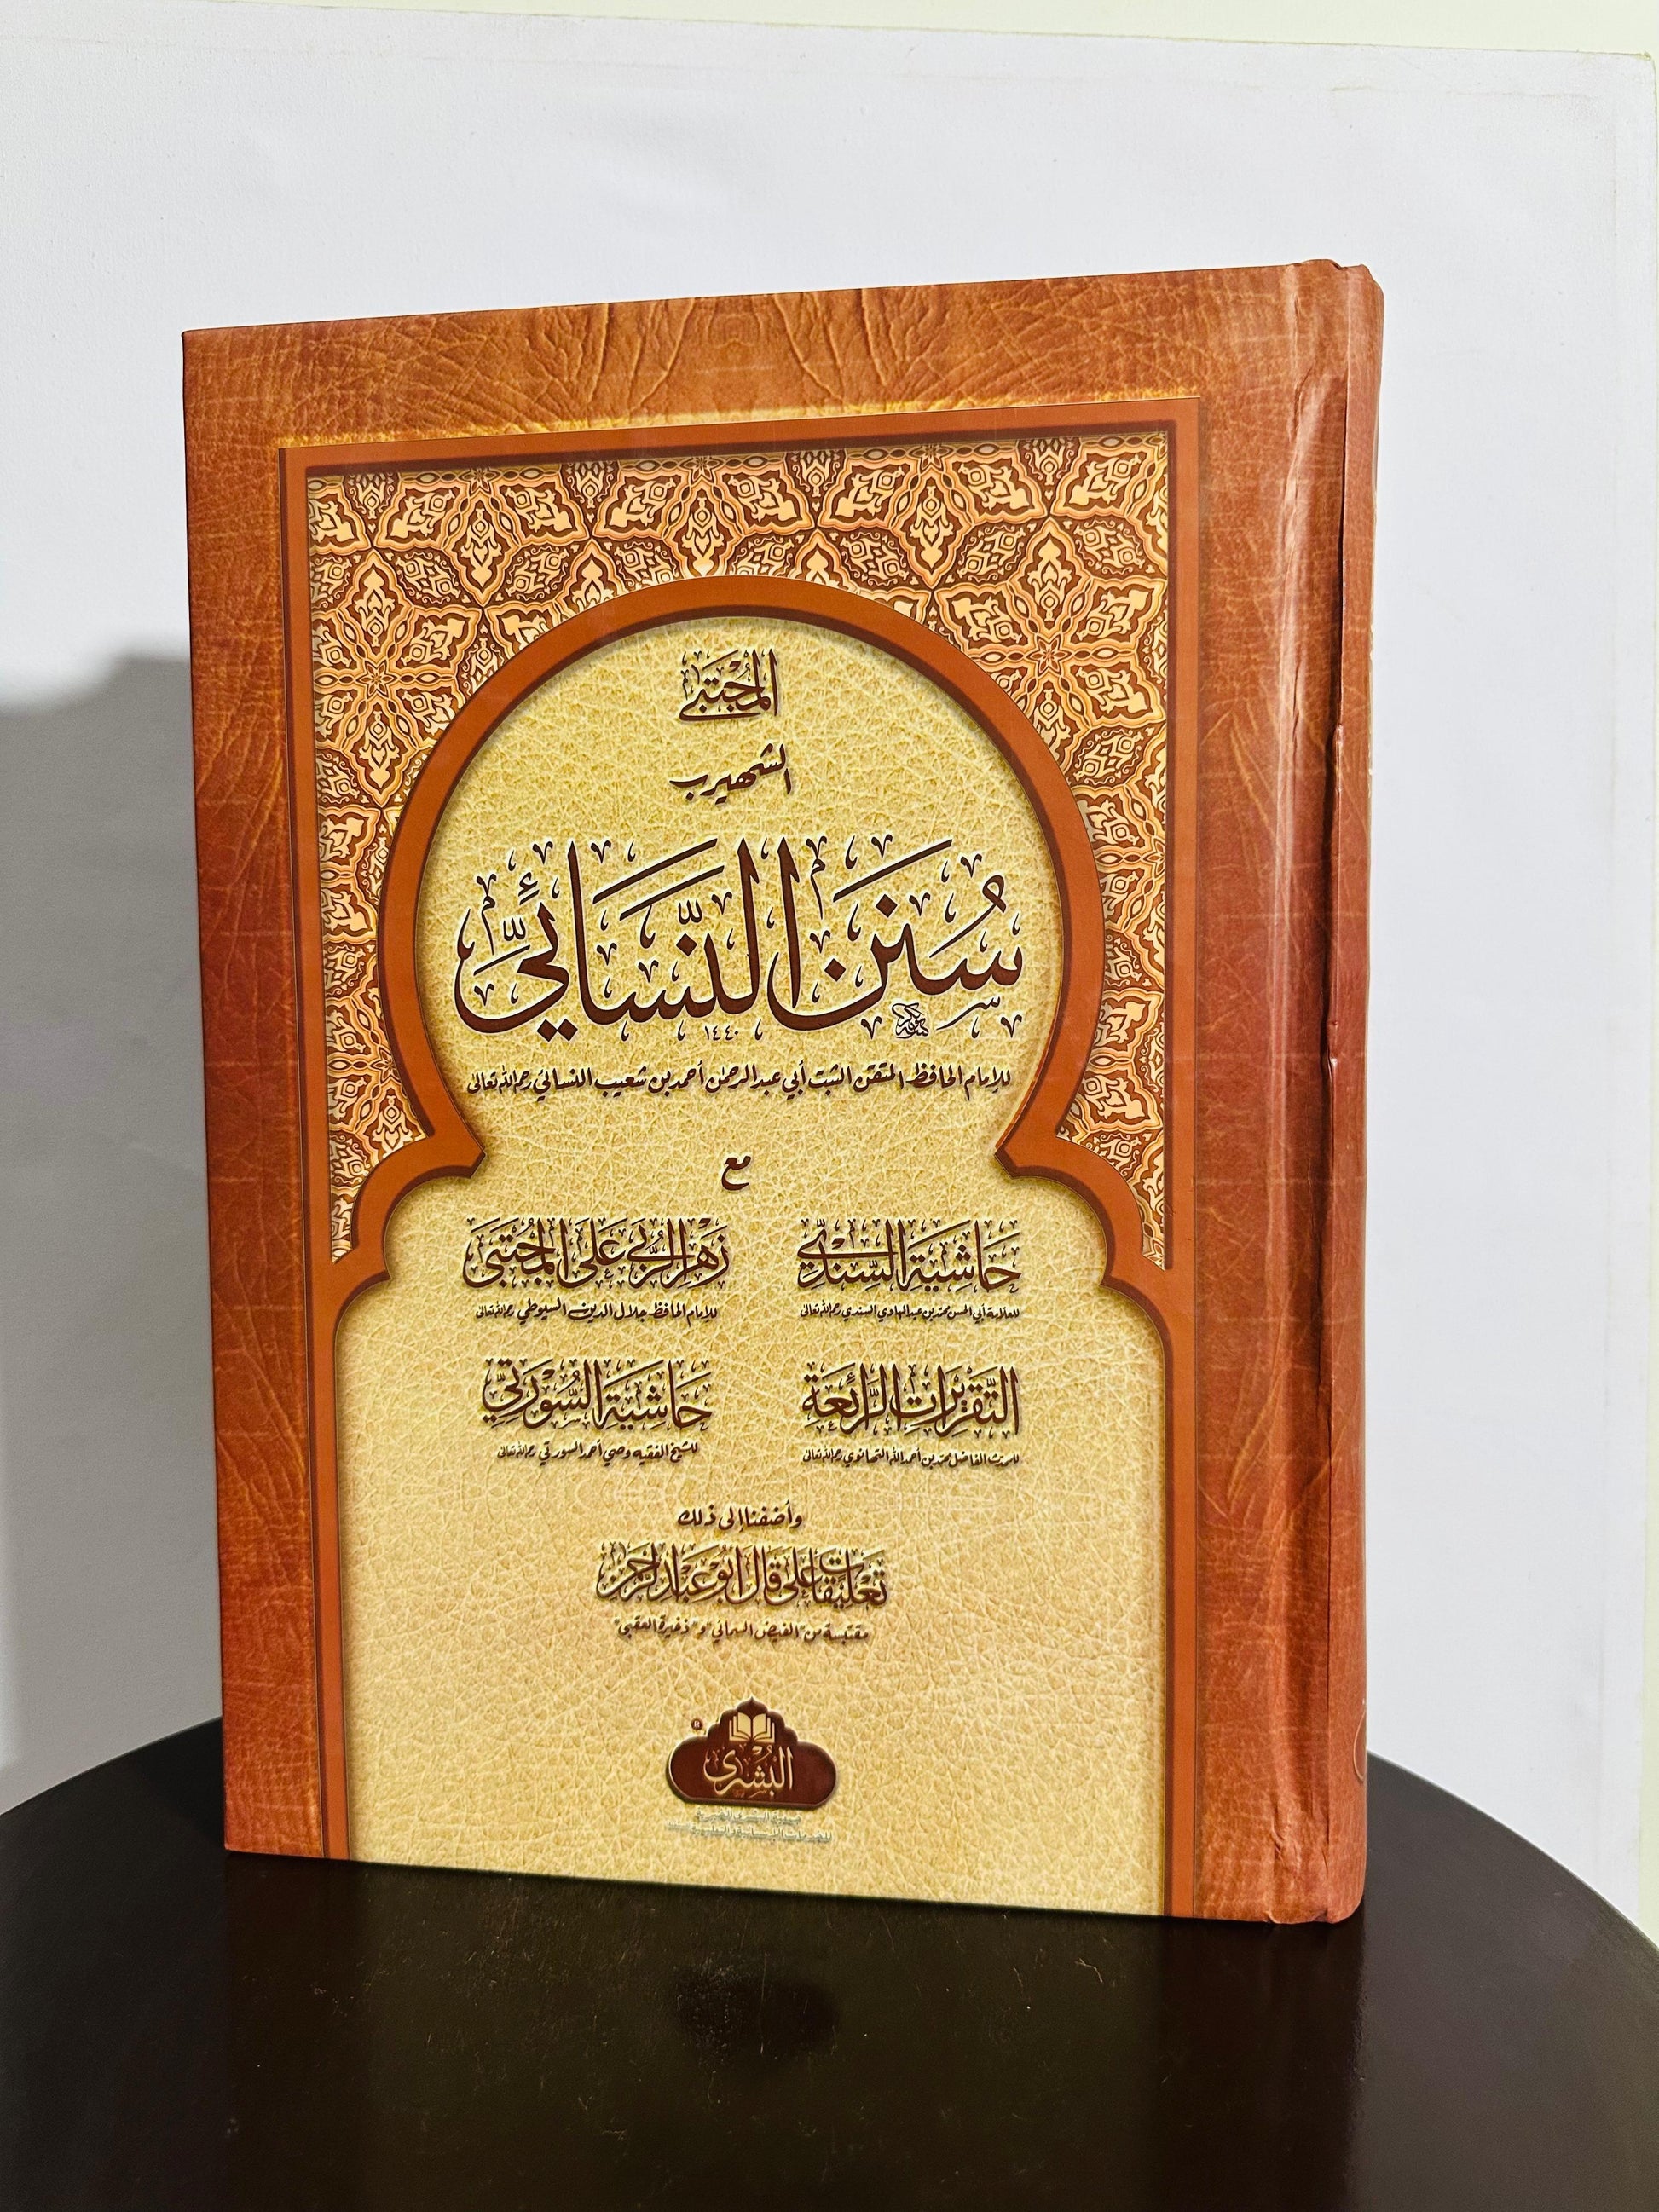 المجتبى
الشهير بـ
سُنَن النَّسَائِيّ
١٤٤٠
للإمام الحافظ المتقن الثبت أبي عبد الرحمن أحمد بن شعيب النسائي رحمه الله تعالى
مع
حَاشِيَة السِّنْدِي
للعلامة أبي الحسن محمد بن عبد الهادي السندي رحمه الله تعالى
زَهْر الرُّبى عَلَى المُجْتَبَى
للإمام الحافظ جلال الدين السيوطي رحمه الله تعالى
التَّقْرِيْرات الرَّائِعَة
للمحدث الفاضل محمد بن أحمد الله التهانوي رحمه الله تعالى
حَاشِيَة السُّوْرَتِيّ
للشيخ الفقيه وصي أحمد السورتي رحمه الله تعالى
وأضفنا إلى ذلك
تَعْلِيْقَات عَلَى قَالَ أَبُو عَبْد الرَّحْمٰن
مقتبسة من "الفيض السمائي" و"ذخيرة العقبى"
البُشْرى